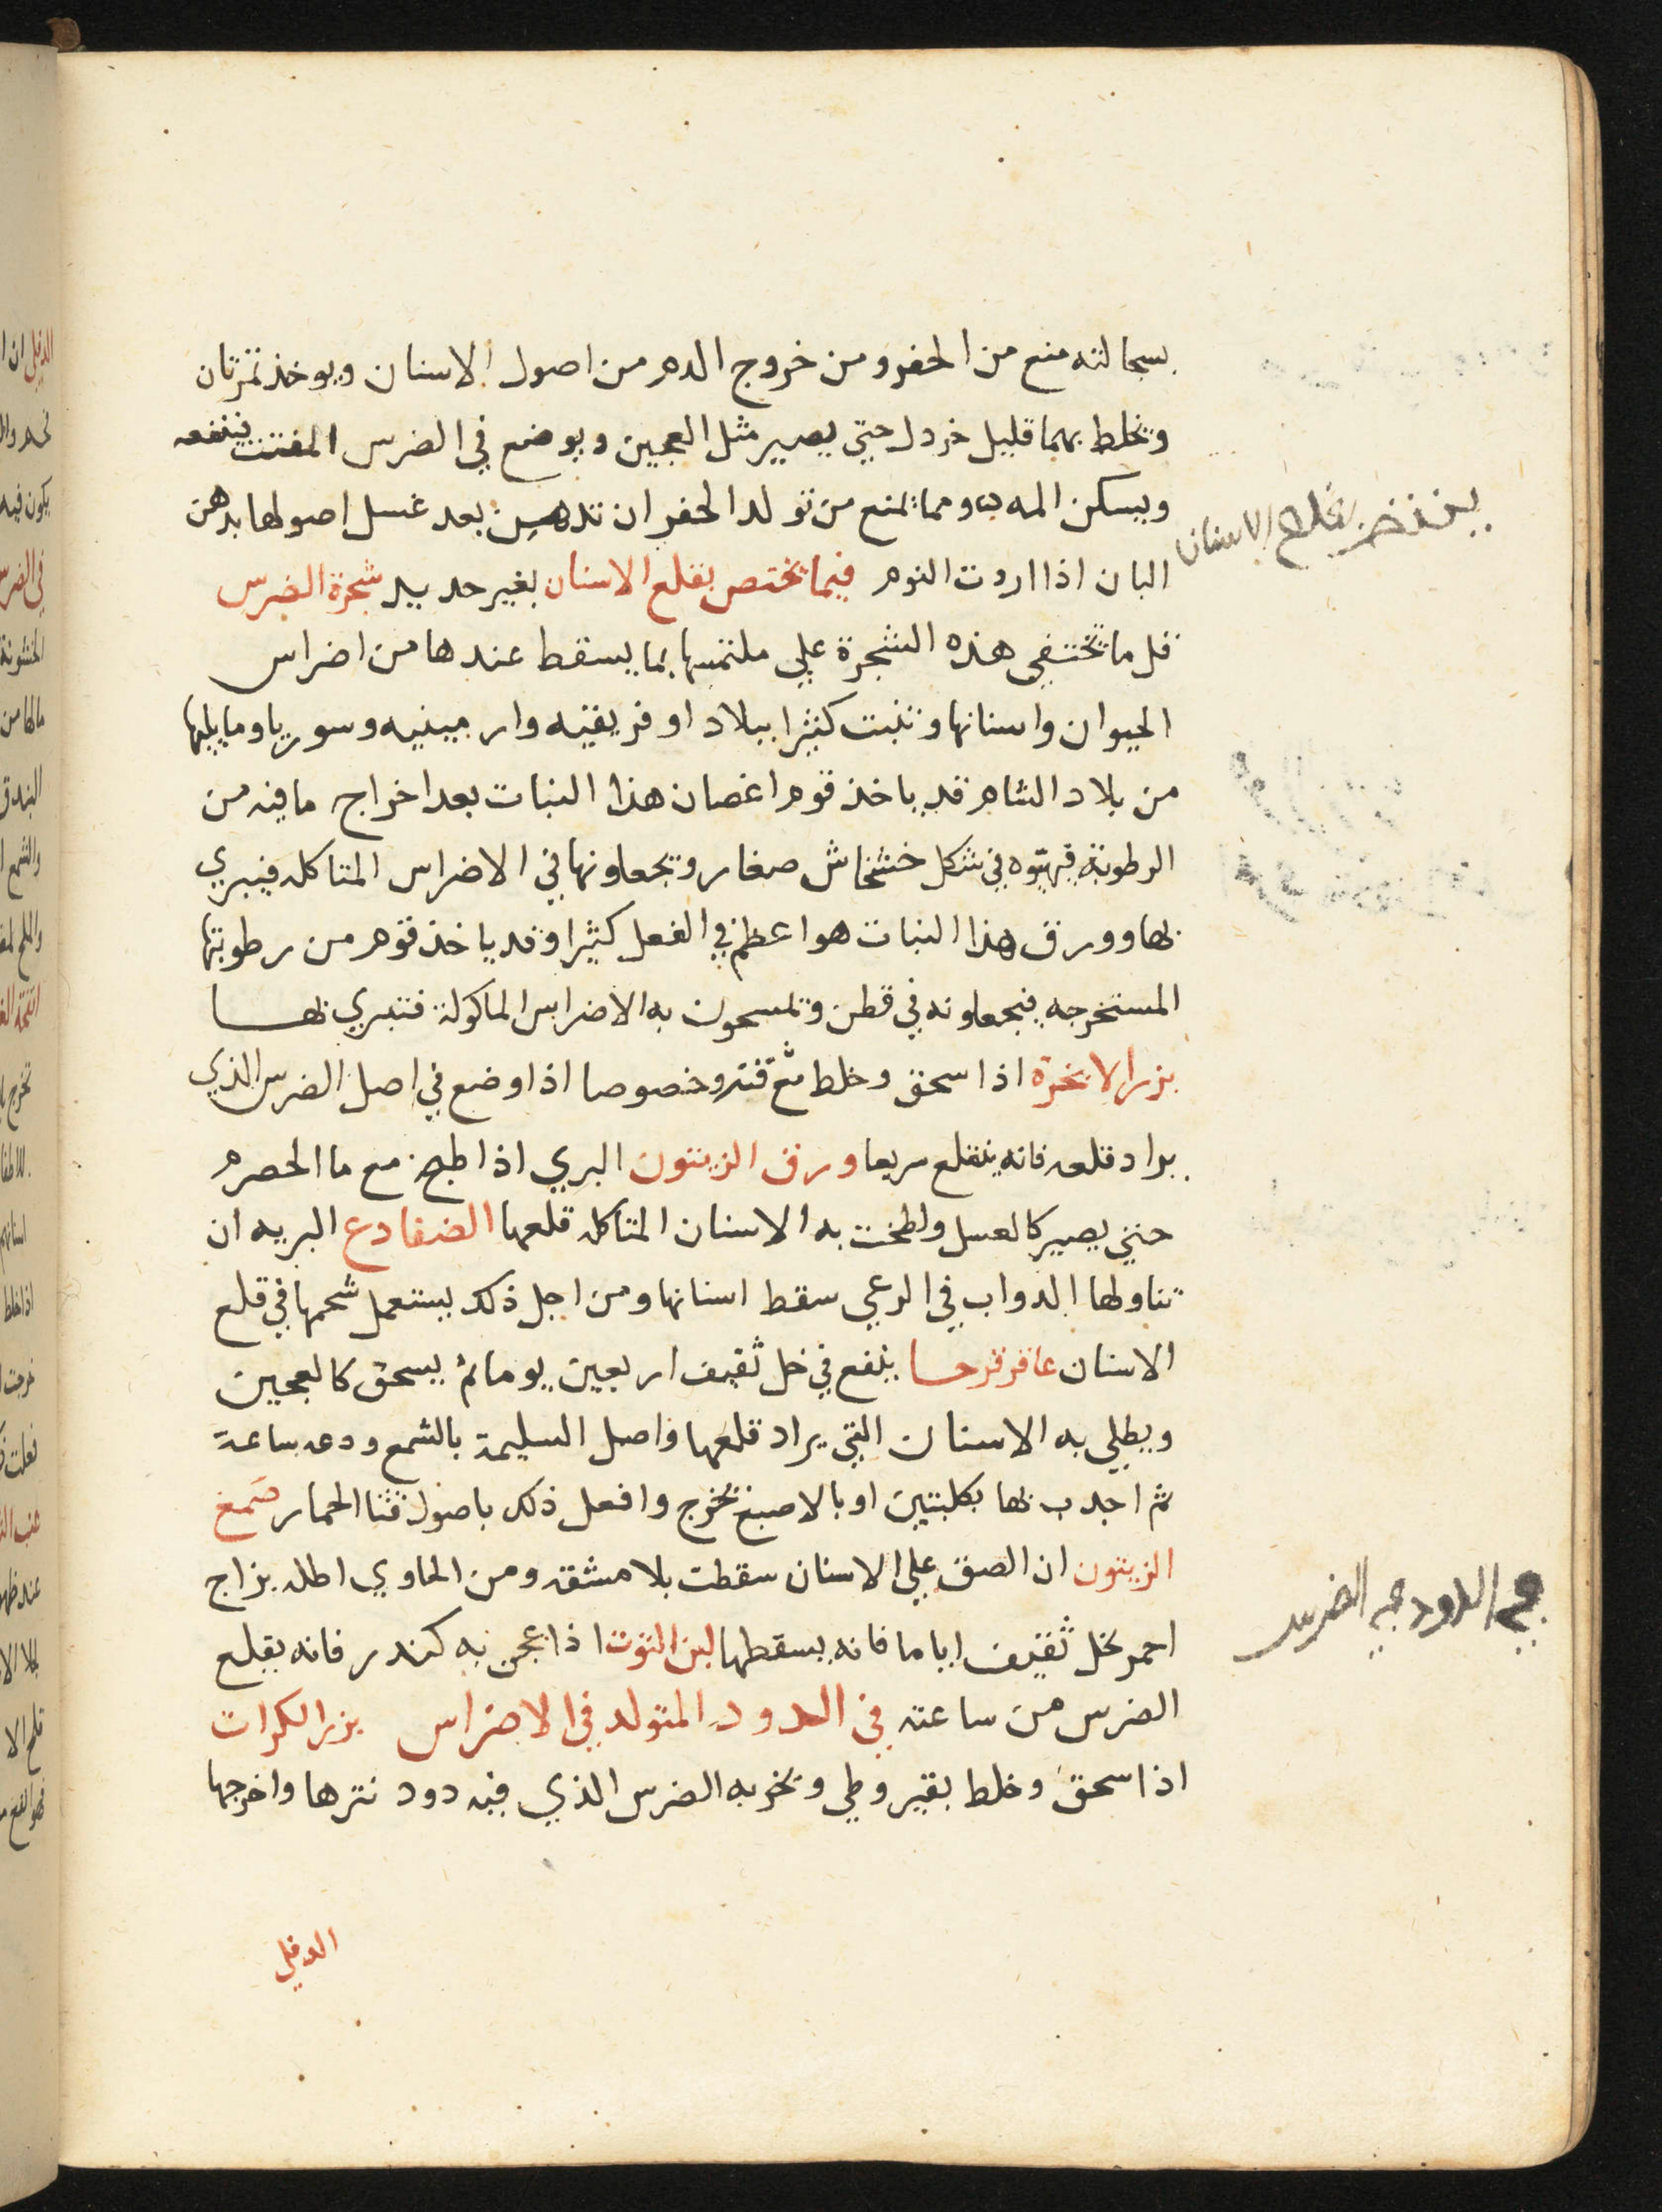 بسحالته منع من الحفر ومن خروج الدم من اصول الاسنان ويوخذ تمرتان
وتخلط بهما قليل خردل حتي يصير مثل العجين ويوضع في الضرس المفتت فينفعه
ويسكن المه ومما يمنع من تولد الحفر ان تدهن بعد غسل اصولها بدهن
البان اذا اردت النوم فيما يختص بقلع الاسنان بغير حديد شجرة الضرس
قل ما تختفي هذه الشجرة علي ملتمسها بما يسقط عندها من اضراس
الحيوان واسنانها وتنبت كثيرا ببلاد اوفريقيه وارمينيه وسوريا وما يليها
من بلاد الشام قد ياخذ قوم اغصان هذا النبات بعد اخراج ما فيه من
الرطوبة فيهيوه في شكل خشخاش صغار وتجعلونها في الاضراس المتاكله فيبري
بها وورق هذا النبات هو اعظم في الفعل كثيرا وقد ياخذ قوم من رطوبتها
المستخرجه فيجعلونه في قطن وتمسحون به الاضراس الماكولة فتبري بها
بزر الانجرة اذا سحق وخلط مع قنه وخصوصا اذا وضع في اصل الضرس الذي
يراد قلعه فانه ينقلع سريعا ورق الزيتون البري اذا طبخ مع ما الحصرم
حتي يصير كالعسل ولطخت به الاسنان المتاكله قلعها الضفادع البريه ان
تناولها الدواب في الرعي سقط اسنانها ومن اجل ذلك يستعمل شحمها في قلع
الاسنان عاقرقرحا ينقع في خل ثقيف اربعين يوما ثم يسحق كالعجين
ويطلي به الاسنان التي يراد قلعها واصل السليمة بالشمع ودعه ساعة
ثم اجدب بها بكلبتين او بالاصبع تخرج وافعل ذلك باصول قثا الحمار صمغ
الزيتون ان الصق علي الاسنان سقطت بلا مشقه ومن الحاوي اطله بزاج
احمر بخل ثقيف اياما فانه يسقطها لبن التوت اذا عجن به كندر فانه يقلع
الضرس من ساعته في الدود المتولد في الاضراس بزر الكرات
اذا سحق وخلط بقيروطي وبخر به الضرس الذي فيه دود نثرها واخرجها
الدفلي
بقلع الاسنان
في الدود في الضرس